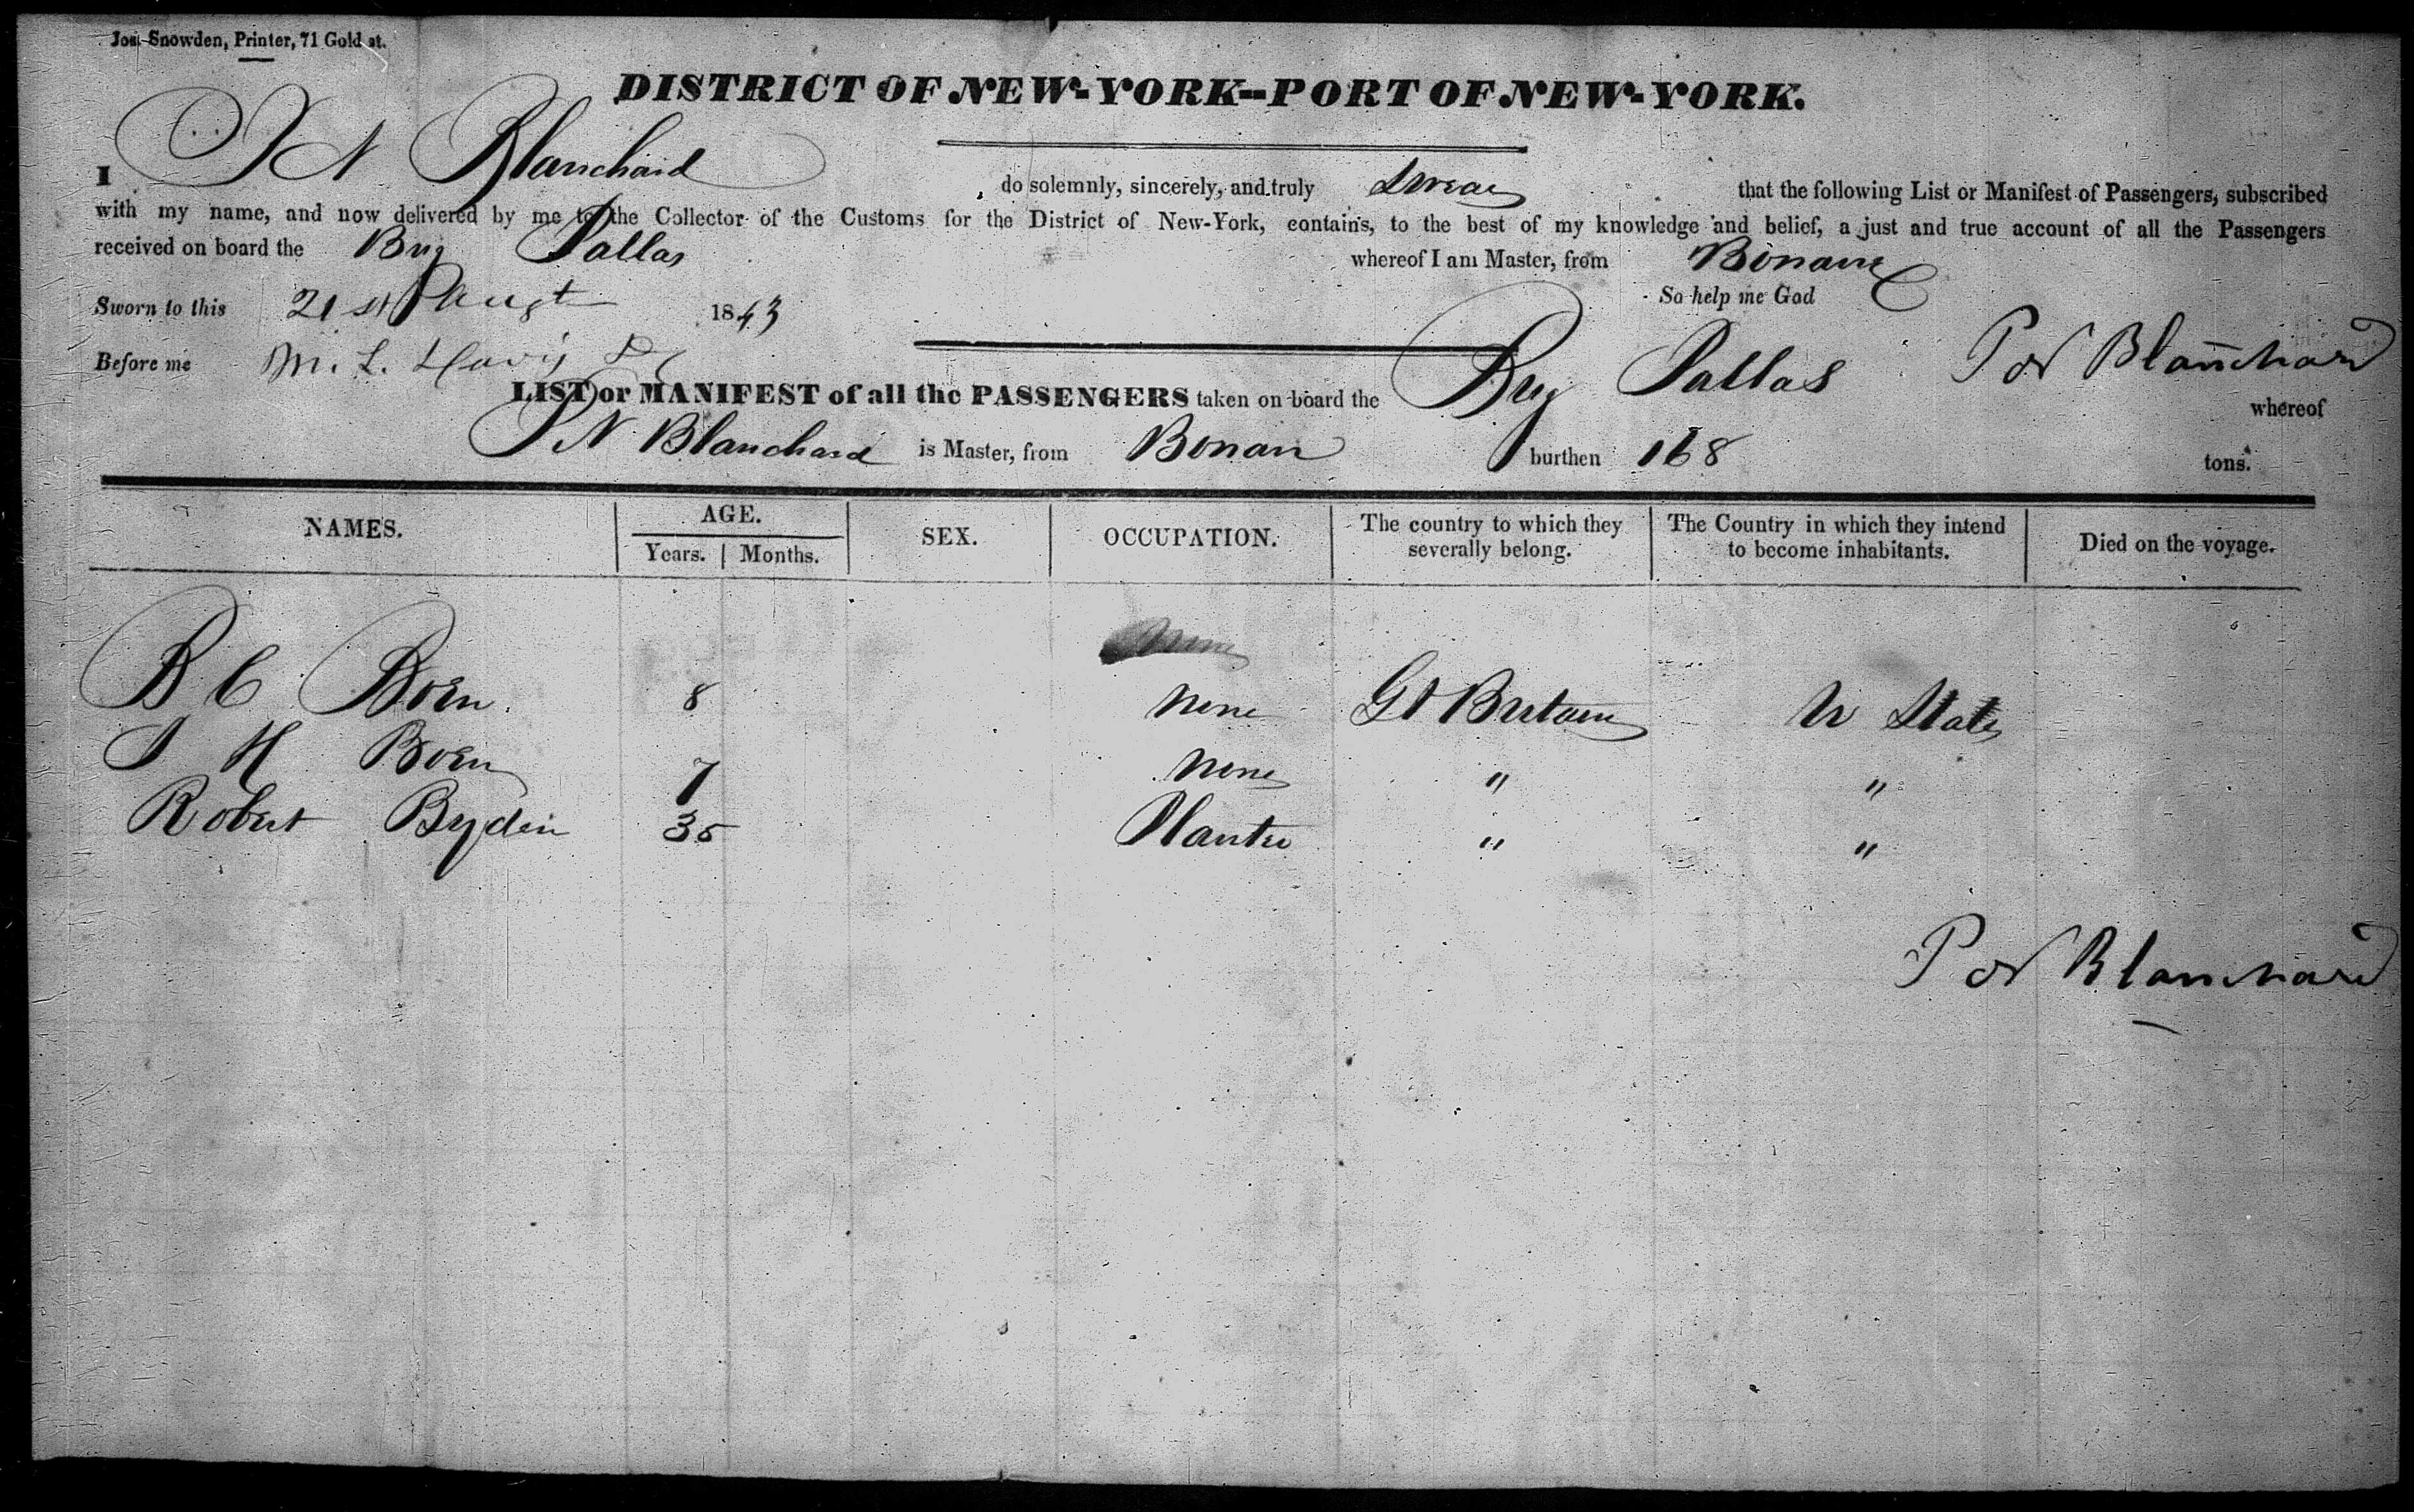 Jos. Snowden, Printer, 71 Gold st.
DISTRICT OF NEW-YORK--PORT OF NEW-YORK.
I P N Blanchard do solemnly, sincerely, and truly swear that the following List or Manifest of Passengers, subscribed
with my name, and now delivered by me to the Collector of the Customs for the District of New-York, contains, to the best of my knowledge and belief, a just and true account of all the Passengers
received on board the Brig Pallas whereof I am Master, from Bonaire
Sworn to this 21st Augt 1843 So help me God
Before me M. L. Davis P N Blanchard
LIST or MANIFEST of all the PASSENGERS taken on board the Brig Pallas whereof
P N Blanchard is Master, from Bonair burthen 168 tons.
NAMES. AGE. SEX. OCCUPATION. The country to which they severally belong. The Country in which they intend to become inhabitants. Died on the voyage.
Years. Months.
B C Boen 8 none Gt Britain U States
J H Boen 7 none " "
Robert Byden 35 Planter " "
P N Blanchard